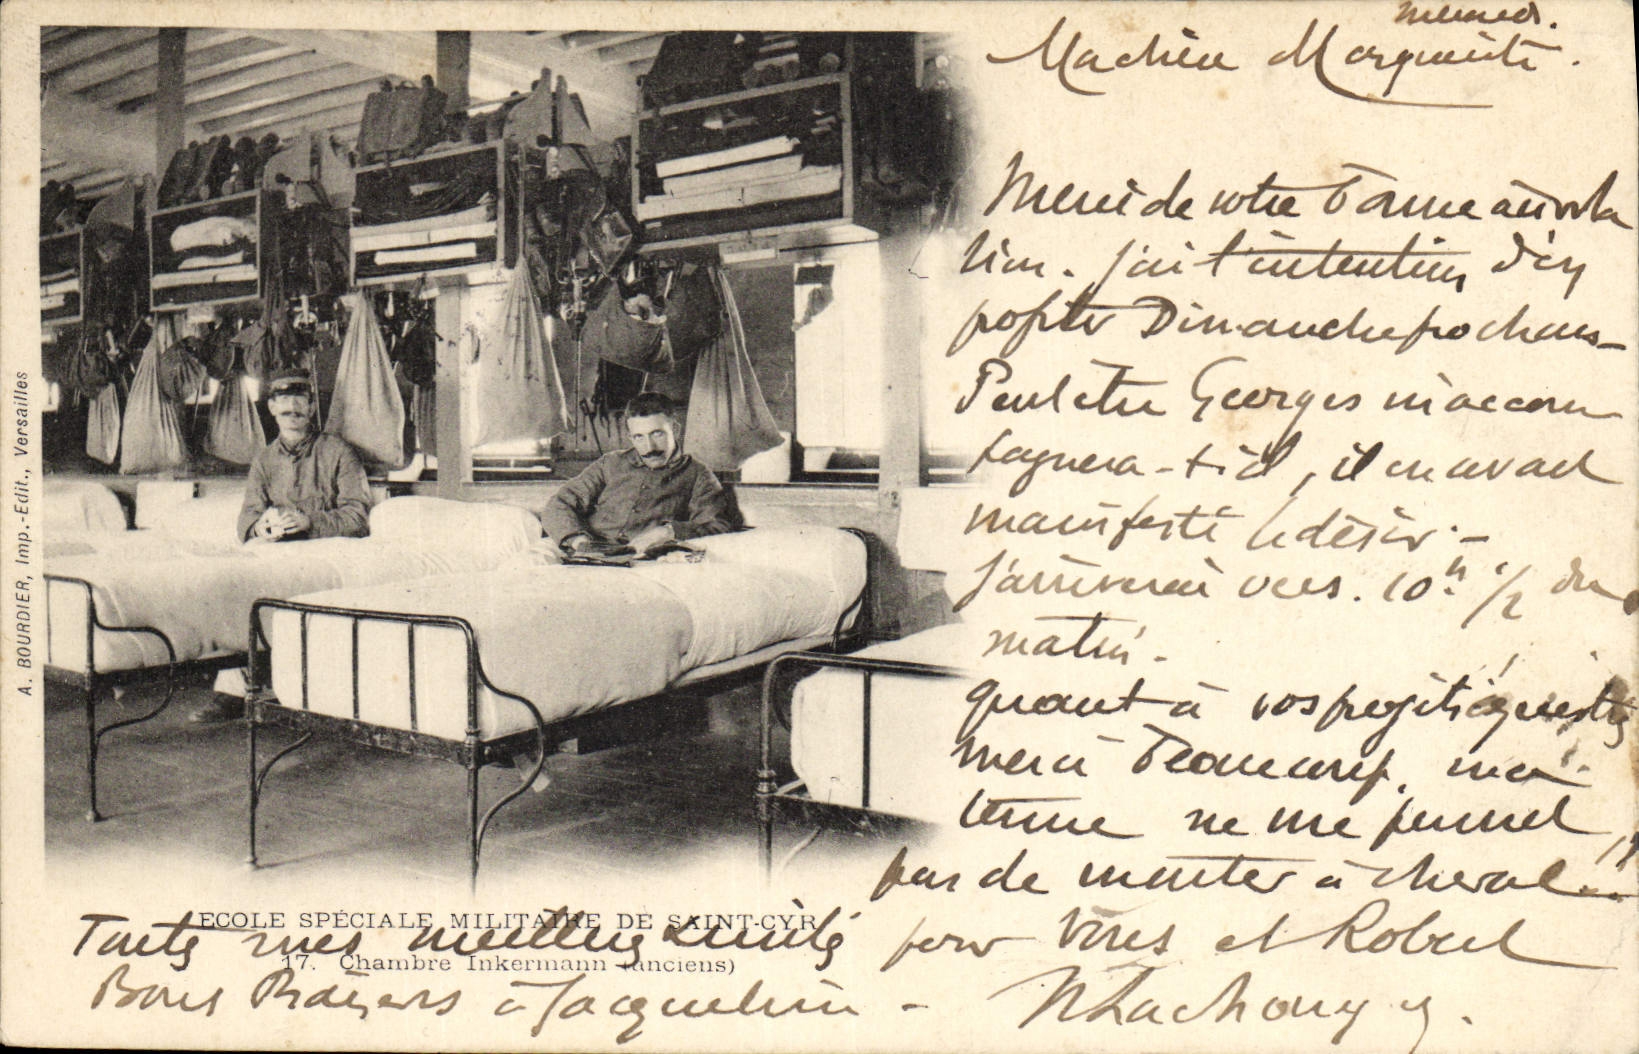 Mercredi.
Ma chère Marguerite.
Merci de votre bonne invita
tion. J'ai l'intention d'en
profiter Dimanche prochain_
Peut être Georges m'accom
pagnera-t-il, il en avait
manifesté le désir. _
J'arriverai vers. 10h. 1/2 du
matin.
quant à vos projets équestres
merci beaucoup, ma
tenue ne me permet
pas de monter à cheval_
Toutes mes meilleures amitiés pour vous et Robert
Bons Baisers à Jacqueline -
ECOLE SPÉCIALE MILITAIRE DE SAINT-CYR
17. Chambre Inkermann (anciens)
A. BOURDIER, Imp.-Edit., Versailles